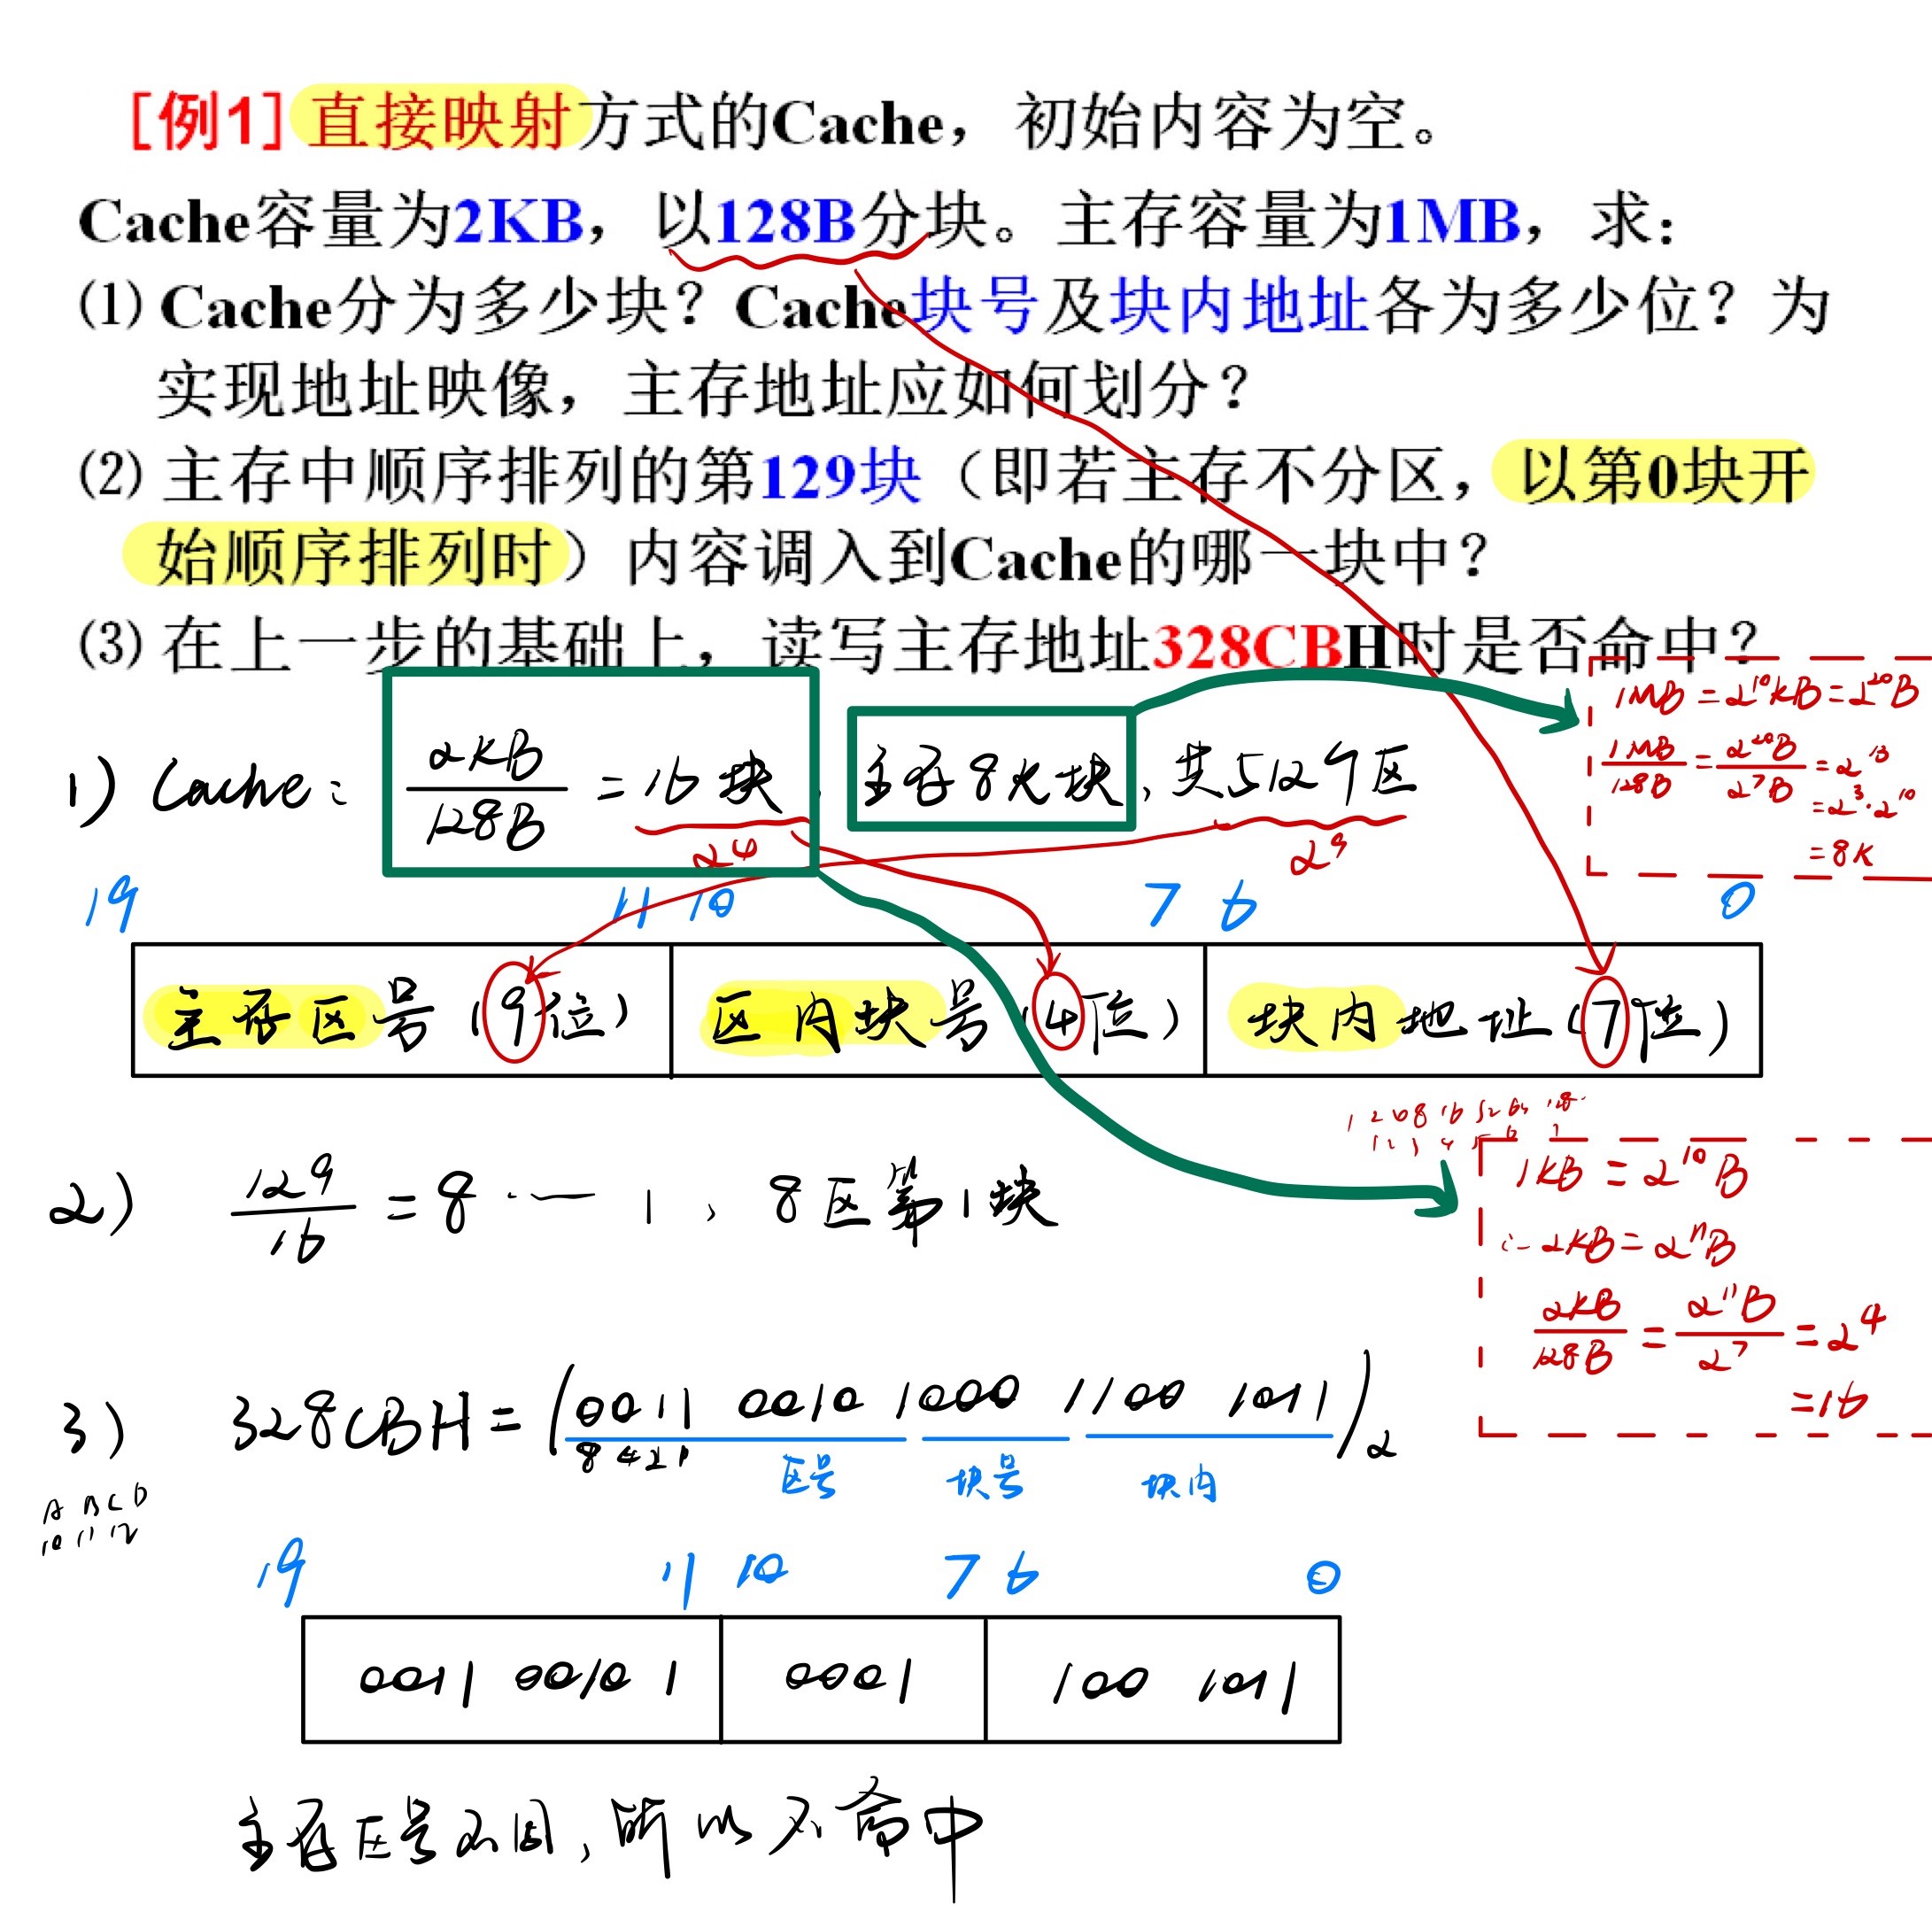 [例1] 直接映射方式的Cache，初始内容为空。
Cache容量为2KB，以128B分块。主存容量为1MB，求：
(1) Cache分为多少块？Cache块号及块内地址各为多少位？为
实现地址映像，主存地址应如何划分？
(2) 主存中顺序排列的第129块（即若主存不分区，以第0块开
始顺序排列时）内容调入到Cache的哪一块中？
(3) 在上一步的基础上，读写主存地址328CBH时是否命中？
1MB = 2^10 KB = 2^20 B
1MB/128B = 2^20B/2^7B = 2^13
= 2^3·2^10
= 8K
1) Cache: 2KB/128B = 16块, 主存8K块, 共512个区
2^4 2^9
19 11 10 7 6 0
主存区号(9位) 区内块号(4位) 块内地址(7位)
1 2 4 8 16 32 64 128
1KB = 2^10 B
∴ 2KB = 2^11 B
2KB/128B = 2^11B/2^7 = 2^4
= 16
2) 129/16 = 8 ⋯ 1, 8区第1块
3) 328CBH = (0011 0010 1000 1100 1011)2
8421 区号 块号 块内
A B C D
10 11 12
19 11 10 7 6 0
0011 0010 1 0001 100 1011
主存区号不同, 所以不命中